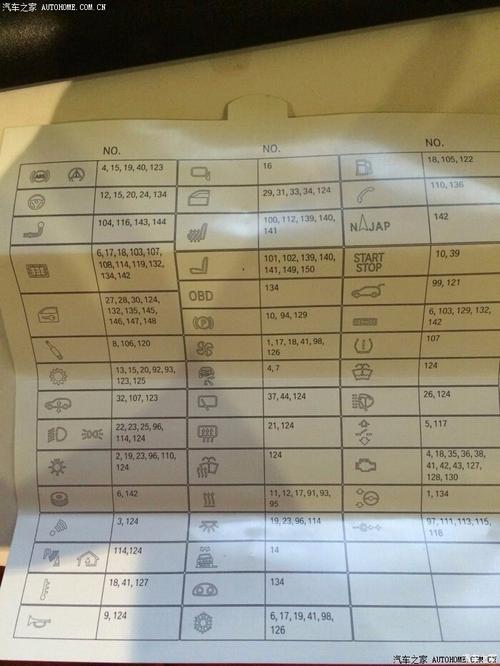 汽车之家 AUTOHOME.COM.CN
汽车之家 AUTOHOME.COM.CN
NO.
NO.
NO.
4, 15, 19, 40, 123
16
18, 105, 122
12, 15, 20, 24, 134
29, 31, 33, 34, 124
110, 136
104, 116, 143, 144
100, 112, 139, 140,
141
N JAP
142
6, 17, 18, 103, 107,
108, 114, 119, 132,
134, 142
101, 102, 139, 140,
141, 149, 150
START
STOP
10, 39
OBD
134
99, 121
27, 28, 30, 124,
132, 135, 145,
146, 147, 148
10, 94, 129
6, 103, 129, 132,
142
8, 106, 120
1, 17, 18, 41, 98,
126
107
13, 15, 20, 92, 93,
123, 125
4, 7
124
32, 107, 123
37, 44, 124
26, 124
22, 23, 25, 96,
114, 124
21, 124
5, 117
2, 19, 23, 96, 110,
124
124
4, 18, 35, 36, 38,
41, 42, 43, 127,
128, 130
6, 142
11, 12, 17, 91, 93,
95
1, 134
3, 124
19, 23, 96, 114
97, 111, 113, 115,
118
114,124
14
18, 41, 127
134
9, 124
6, 17, 19, 41, 98,
126
汽车之家 AUTOHOME.COM.CN